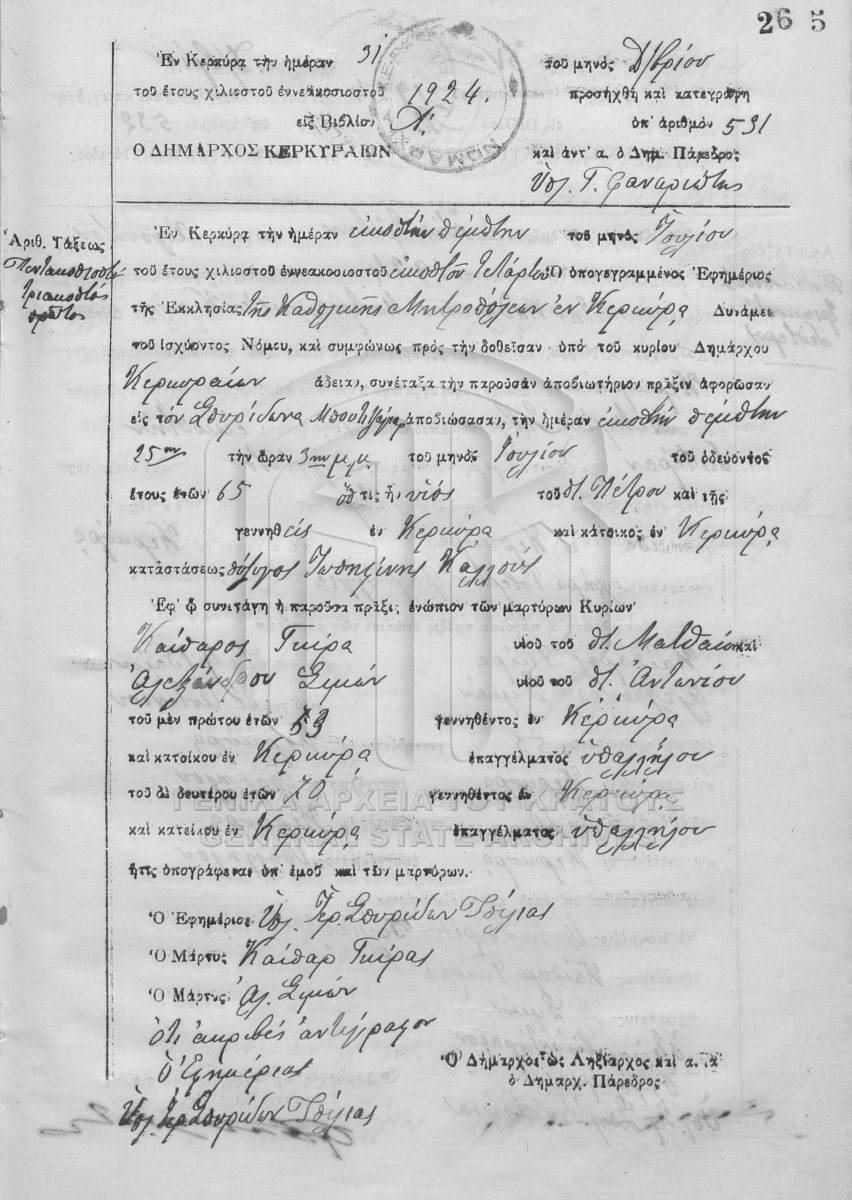 26 5
Ἐν Κερκύρᾳ τὴν ἡμέραν 31 τοῦ μηνὸς Δ/βρίου
τοῦ ἔτους χιλιοστοῦ ἐννεακοσιοστοῦ 1924. προσήχθη καὶ κατεγράφη
εἰς Βιβλίον Α! ὑπ' ἀριθμὸν 531
Ο ΔΗΜΑΡΧΟΣ ΚΕΡΚΥΡΑΙΩΝ καὶ ἀντ' α. ὁ Δημ. Πάρεδρος
Ὑπ. Γ. Φαναριώτης
Ἀριθ. Τάξεως
Πεντακοσιοστὸς
τριακοστὸς
πρῶτος
Ἐν Κερκύρᾳ τὴν ἡμέραν εἰκοστὴν πέμπτην τοῦ μηνὸς Ἰουλίου
τοῦ ἔτους χιλιοστοῦ ἐννεακοσιοστοῦ εἰκοστοῦ τετάρτου Ὁ ὑπογεγραμμένος Ἐφημέριος
τῆς Ἐκκλησίας τῆς Καθολικῆς Μητροπόλεως ἐν Κερκύρᾳ Δυνάμει
τοῦ ἰσχύοντος Νόμου, καὶ συμφώνως πρὸς τὴν δοθεῖσαν ὑπὸ τοῦ κυρίου Δημάρχου
Κερκυραίων ἄδειαν, συνέταξα τὴν παροῦσαν ἀποβιωτήριον πρᾶξιν ἀφορῶσαν
εἰς τὸν Σπυρίδωνα ἀποβιώσασαν, τὴν ἡμέραν εἰκοστὴν πέμπτην
25ην τὴν ὥραν 3ην μ.μ. τοῦ μηνὸς Ἰουλίου τοῦ ὁδεύοντος
ἔτους ἐτῶν 65 ὅστις ἦν υἱὸς τοῦ π. Πέτρου καὶ τῆς
γεννηθεὶς ἐν Κερκύρᾳ καὶ κάτοικος ἐν Κερκύρᾳ
καταστάσεως σύζυγος Ἰωσηφίνης Καλλούς
Ἐφ' ᾧ συνετάγη ἡ παροῦσα πρᾶξις ἐνώπιον τῶν μαρτύρων Κυρίων
Καίσαρος Γκίρα υἱοῦ τοῦ π. Ματθαίου καὶ
Ἀλεξάνδρου Σιμών υἱοῦ τοῦ π. Ἀντωνίου
τοῦ μὲν πρώτου ἐτῶν 53 γεννηθέντος ἐν Κερκύρᾳ
καὶ κατοίκου ἐν Κερκύρᾳ ἐπαγγέλματος ὑπαλλήλου
τοῦ δὲ δευτέρου ἐτῶν 70 γεννηθέντος ἐν Κερκύρᾳ
ΓΕΝΙΚΑ ΑΡΧΕΙΑ ΤΟΥ ΚΡΑΤΟΥΣ
καὶ κατοίκου ἐν Κερκύρᾳ ἐπαγγέλματος ὑπαλλήλου
GENERAL STATE ARCHIVES
ἥτις ὑπογράφεται ὑπ' ἐμοῦ καὶ τῶν μαρτύρων.
Ὁ Ἐφημέριος Ὑπ. Ἱερ. Σπυρίδων
Ὁ Μάρτυς Καίσαρ Γκίρας
Ὁ Μάρτυς Ἀλ. Σιμών
Ὅτι ἀκριβὲς ἀντίγραφον
Ὁ Ἐφημέριος
Ὁ Δήμαρχος ὡς Ληξίαρχος καὶ α. α
ὁ Δημαρχ. Πάρεδρος
Ὑπ. Ἱερ. Σπυρίδων